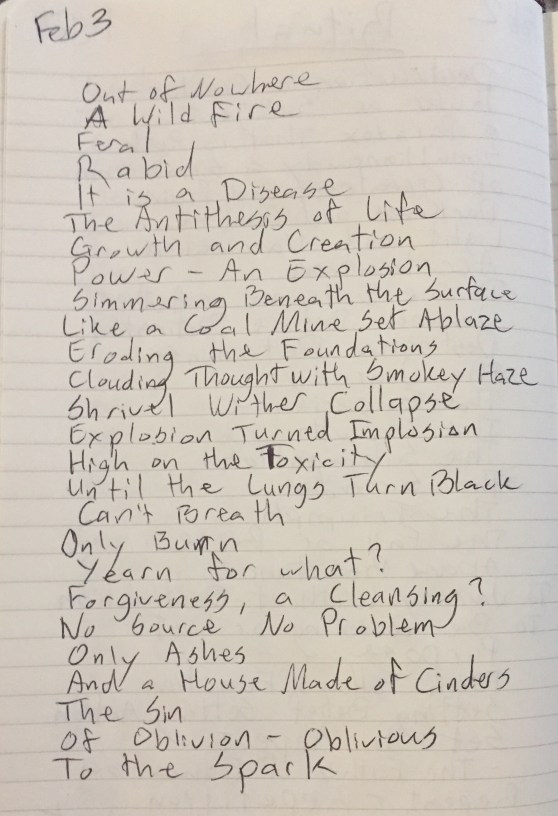 Feb 3
Out of Nowhere
A Wild Fire
Feral
Rabid
It is a Disease
The Antithesis of Life
Growth and Creation
Power - An Explosion
Simmering Beneath the Surface
Like a Coal Mine Set Ablaze
Eroding the Foundations
Clouding Thought with Smokey Haze
Shrivel Wither Collapse
Explosion Turned Implosion
High on the Toxicity
Until the Lungs Turn Black
Can't Breath
Only Burn
Yearn for what?
Forgiveness, a Cleansing?
No Source No Problem
Only Ashes
And a House Made of Cinders
The Sin
Of Oblivion - Oblivious
To the Spark